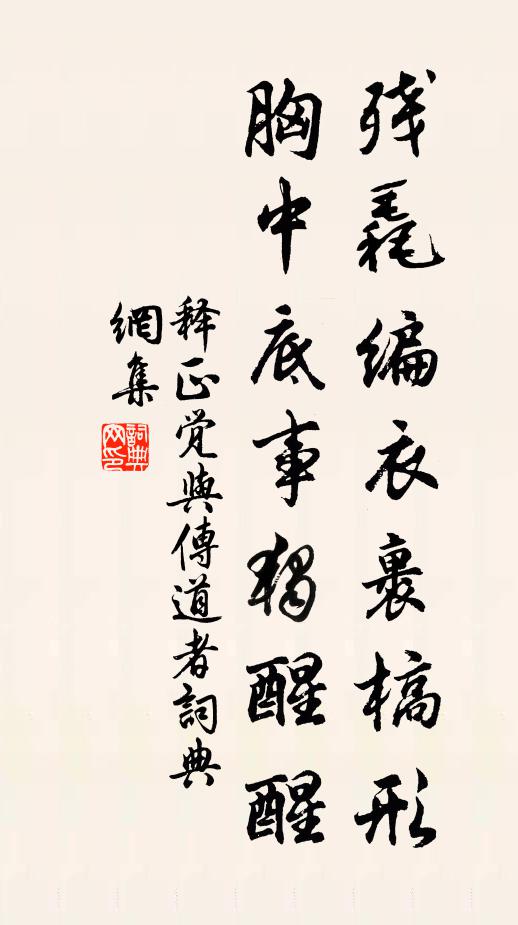 残毳编衣裹槁形
胸中底事独醒醒
释正觉与傳道者詞典
網集
詞典网印